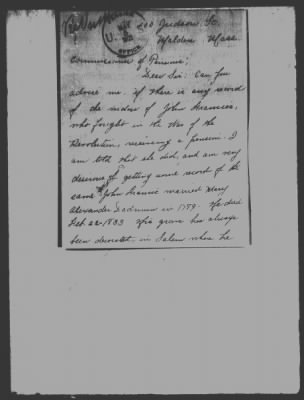 200 Judson St.
Malden Mass.
Commissioner of Pensions;
Dear Sir: Can you
advise me if there is any record
of the widow of John
who fought in the War of the
Revolution, receiving a pension. I
am told that she did, and am very
desirous of getting some record of the
same. John married Mary
Alexander in 1779. He died
Feb 22-1833 His grave has always
been decorated in Salem where he